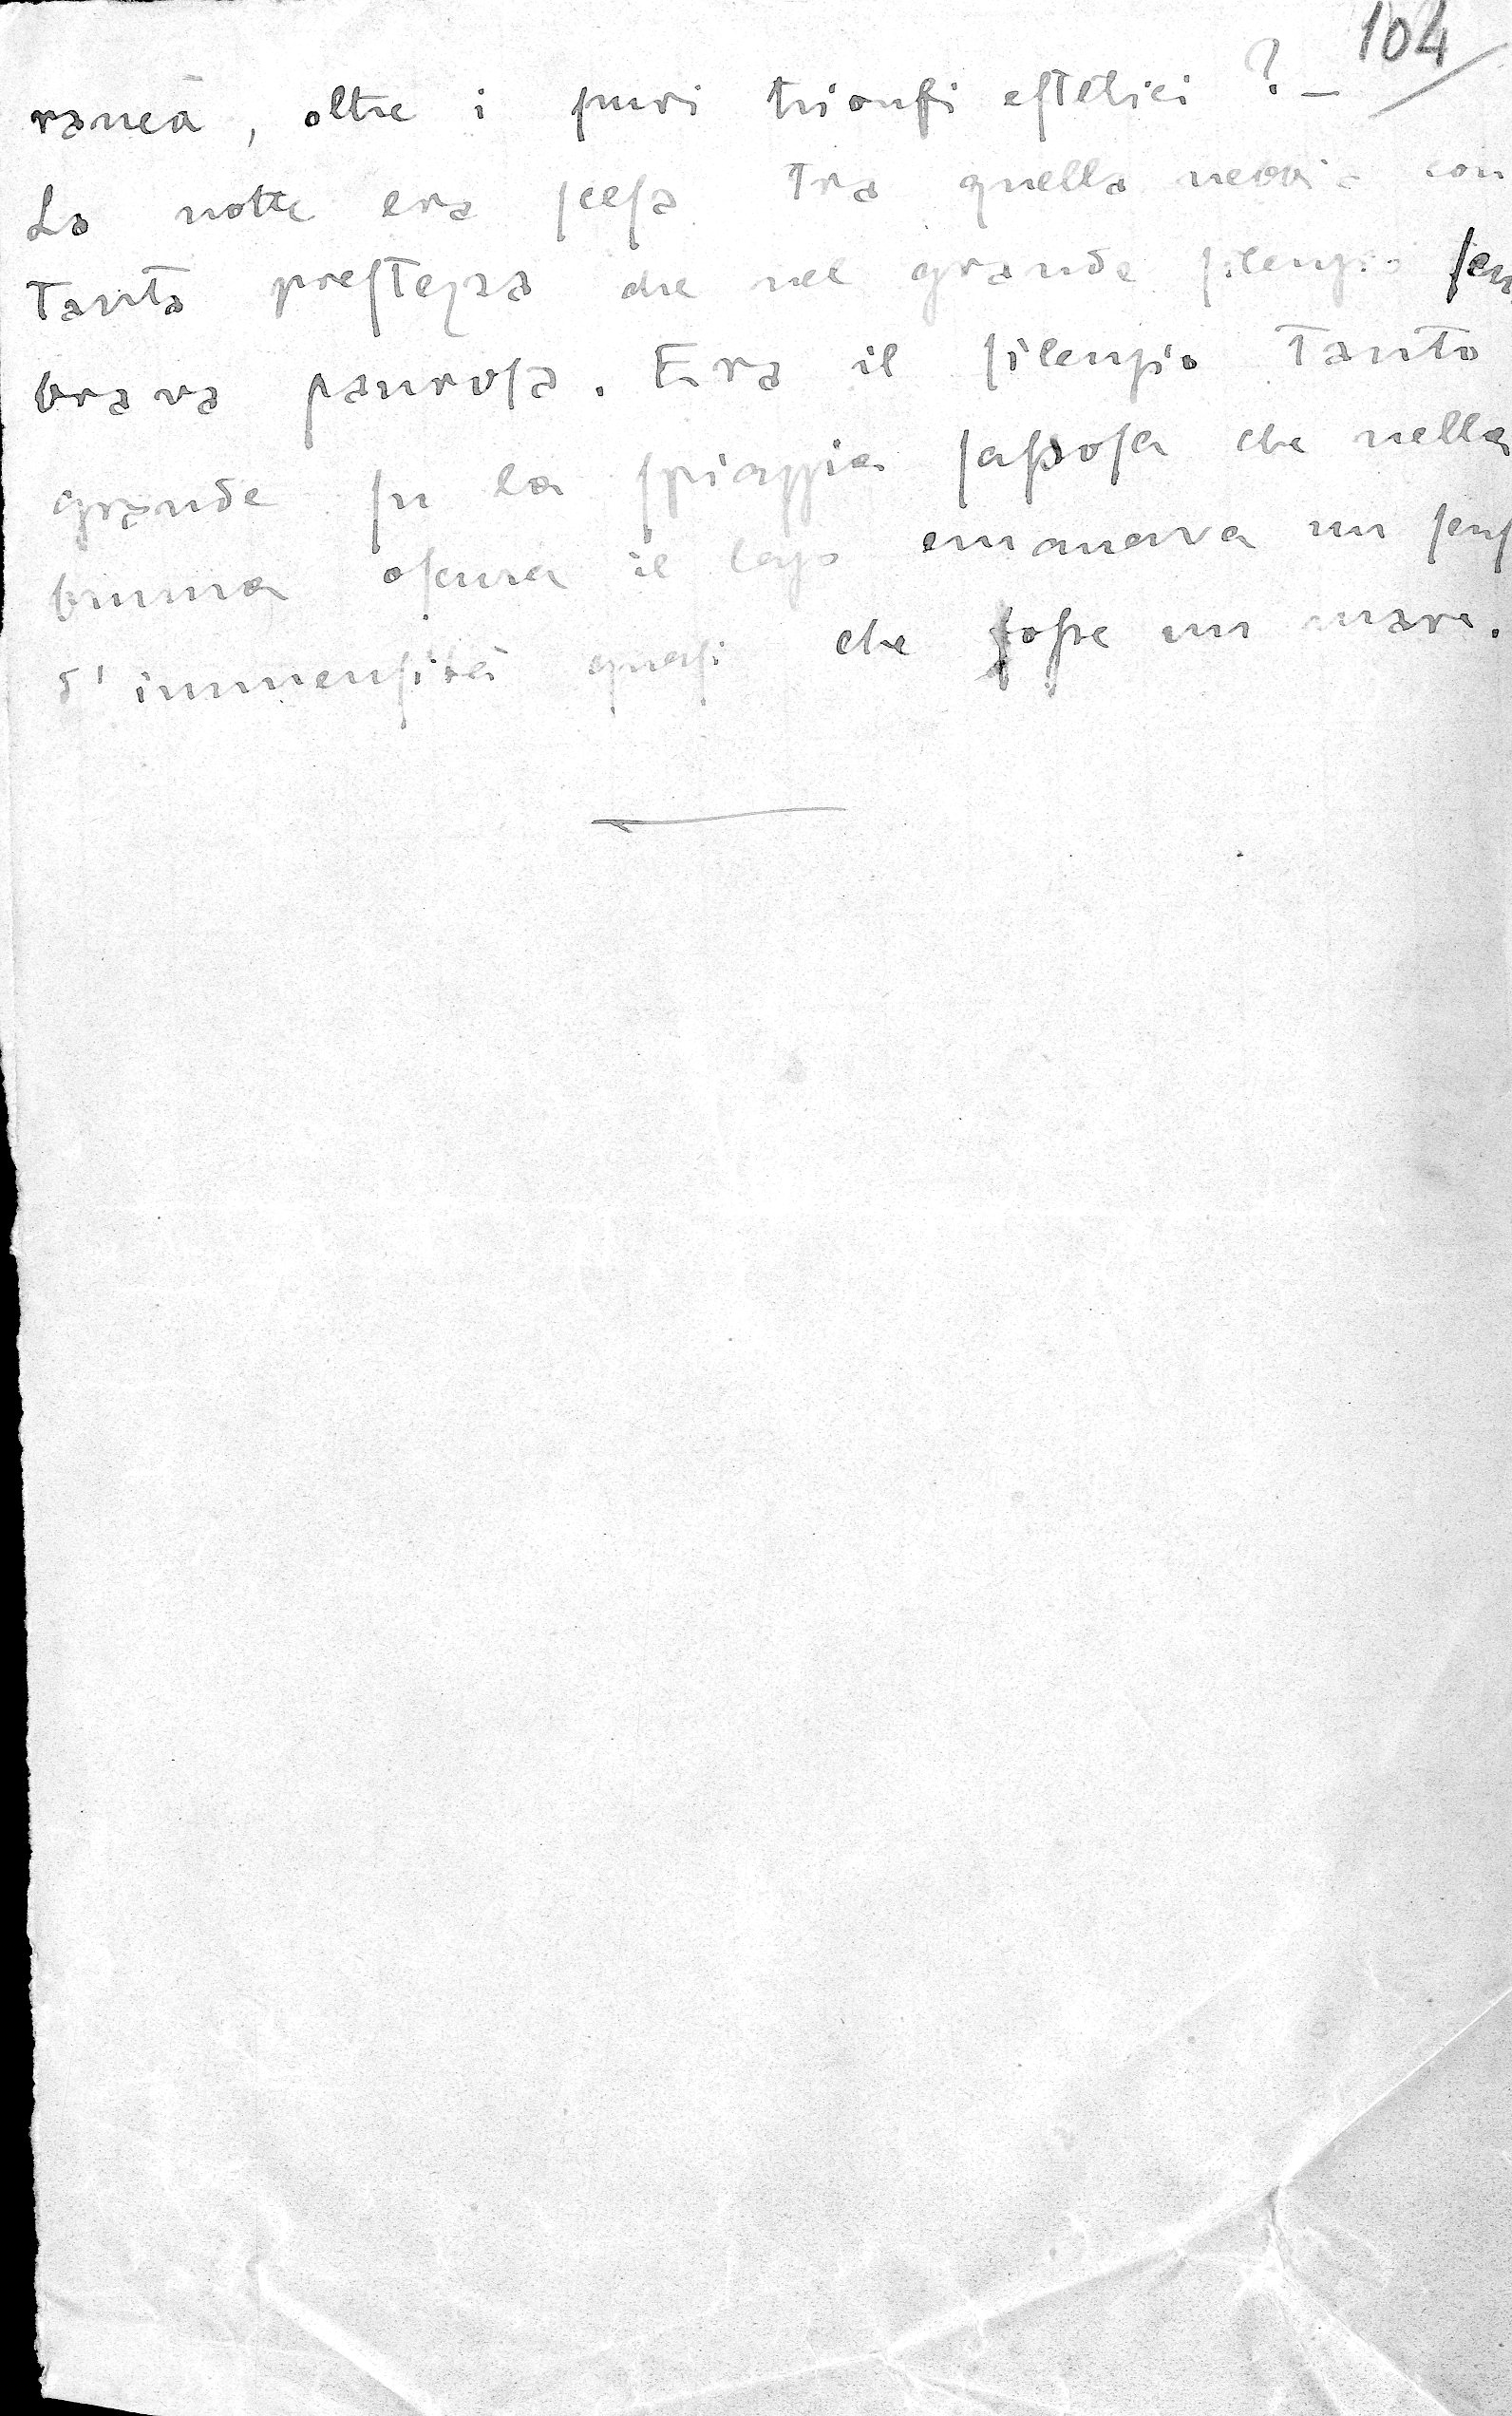 104
raneà, oltre i puri trionfi estetici? –
La notte era scesa tra quella nebbia con
tanta prestezza che nel grande silenzio sem
brava paurosa. Era il silenzio tanto
grande su la spiaggia sassosa che nella
bruma oscura il lago emanava un sens
d'immensità quasi che fosse un mare.